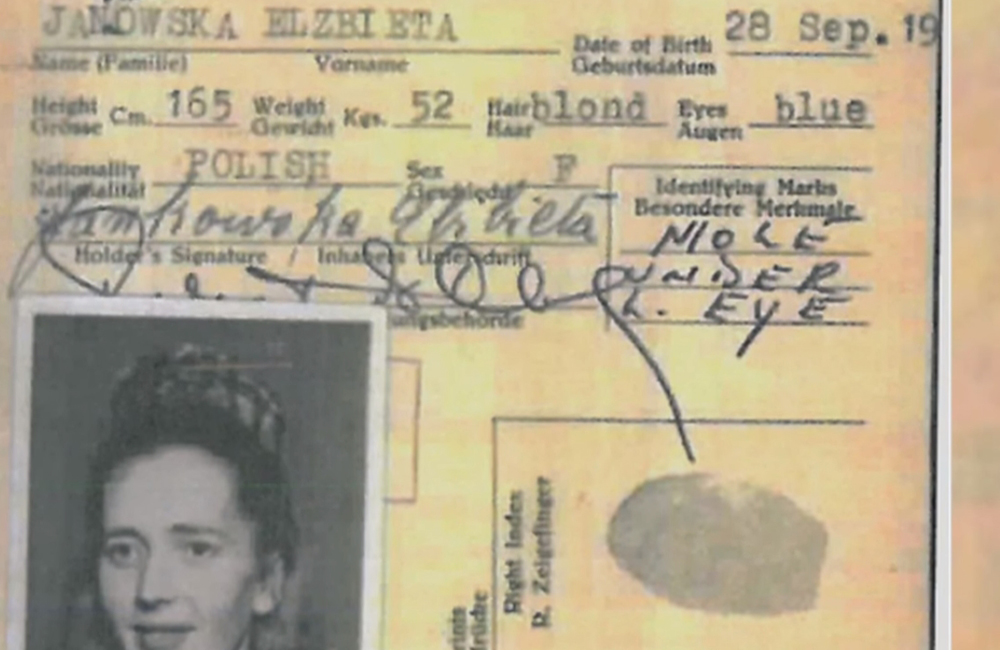 JANOWSKA ELZBIETA
Name (Familie) Vorname
Date of Birth 28 Sep. 19
Geburtsdatum
Height Cm. 165 Weight Kgs. 52 Hair blond Eyes blue
Grösse Gewicht Haar Augen
Nationality POLISH Sex F
Nationalität Geschlecht
Jankowska Elzbieta
Holder's Signature / Inhabers Unterschrift
Identifying Marks
Besondere Merkmale
MOLE
UNDER
L. EYE
Right Index
R. Zeigefinger